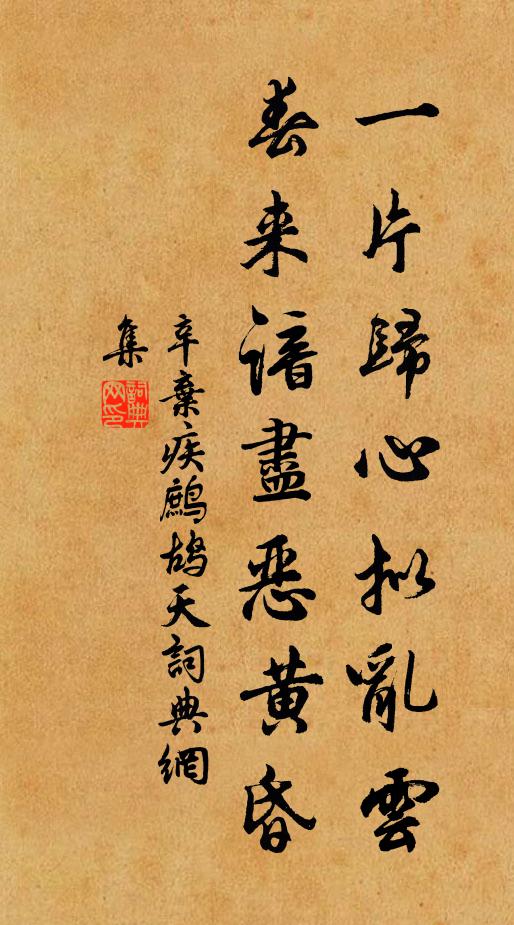 一片歸心拟亂雲
春来諳盡惡黄昏
辛棄疾鷓鴣天詞典網
集
詞典網印